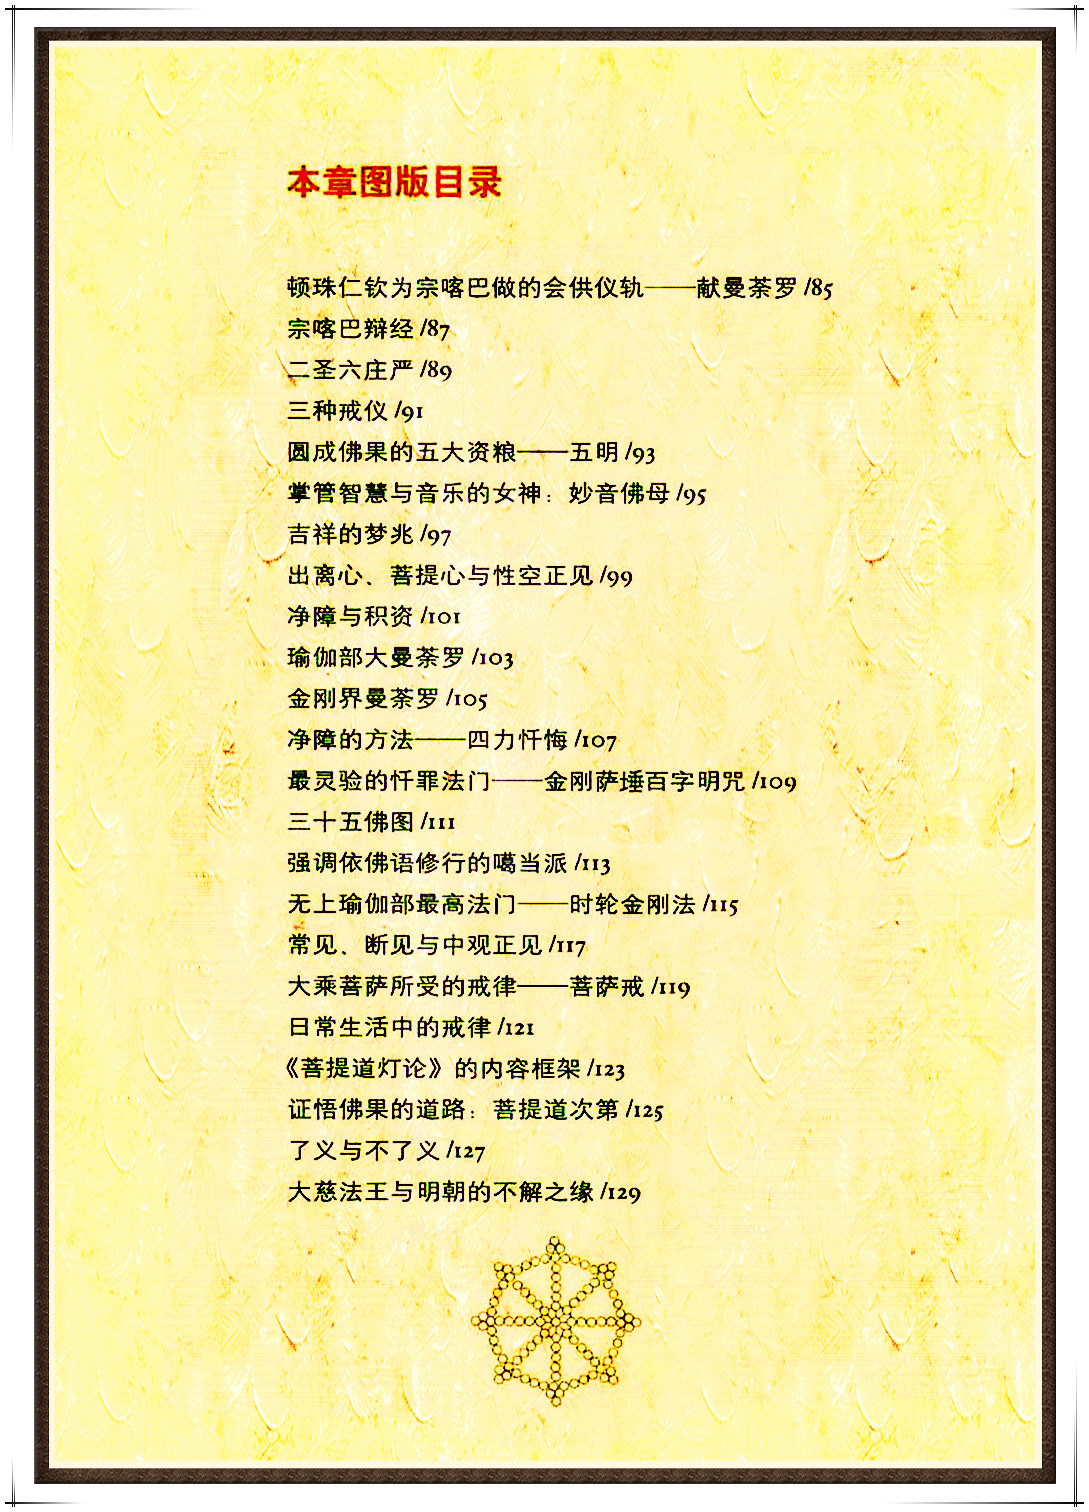 本章图版目录
顿珠仁钦为宗喀巴做的会供仪轨——献曼荼罗 /85
宗喀巴辩经 /87
二圣六庄严 /89
三种戒仪 /91
圆成佛果的五大资粮——五明 /93
掌管智慧与音乐的女神：妙音佛母 /95
吉祥的梦兆 /97
出离心、菩提心与性空正见 /99
净障与积资 /101
瑜伽部大曼荼罗 /103
金刚界曼荼罗 /105
净障的方法——四力忏悔 /107
最灵验的忏罪法门——金刚萨埵百字明咒 /109
三十五佛图 /111
强调依佛语修行的噶当派 /113
无上瑜伽部最高法门——时轮金刚法 /115
常见、断见与中观正见 /117
大乘菩萨所受的戒律——菩萨戒 /119
日常生活中的戒律 /121
《菩提道灯论》的内容框架 /123
证悟佛果的道路：菩提道次第 /125
了义与不了义 /127
大慈法王与明朝的不解之缘 /129